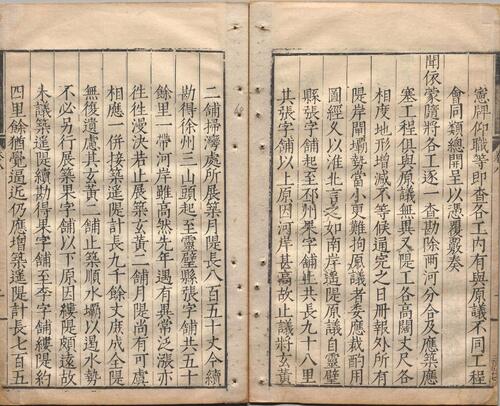 憲牌仰等即查各工內有與原議不同工程
會同類總開呈以憑覆覈奏
聞依蒙隨將各工逐一查勘除兩河分合及應築應
塞工程俱與原議無異又隄工各高闊丈尺各
相度地形增減不等候通完之日冊報外所有
隄岸閘壩勢當小更難拘原議者妄應裁酌用
圖經久以淮北言之如南岸遥隄原議自靈壁
縣張字舖起至邳州果字舖止共長九十八里
其張字舖以上原因河岸甚高故止議將玄黃
二舖掃灣處所展築月隄長八百五十丈今續
勘得徐州三山頭起至靈壁縣張字舖共五十
餘里一帶河岸雖高然先年遇有異常泛漲亦
徃徃漫決若止展築玄黃二舖月隄尚有可虞
相應一併接築遥隄計長九千餘丈庶成全隄
無復遺慮其玄黃二舖止築順水壩以遏水勢
不必另行展築果字舖以下原因縷隄頗遠故
未議築遥隄續勘得果字舖至李字舖縷隄約
四里餘猶覺逼近仍應增築遥隄計長七百五